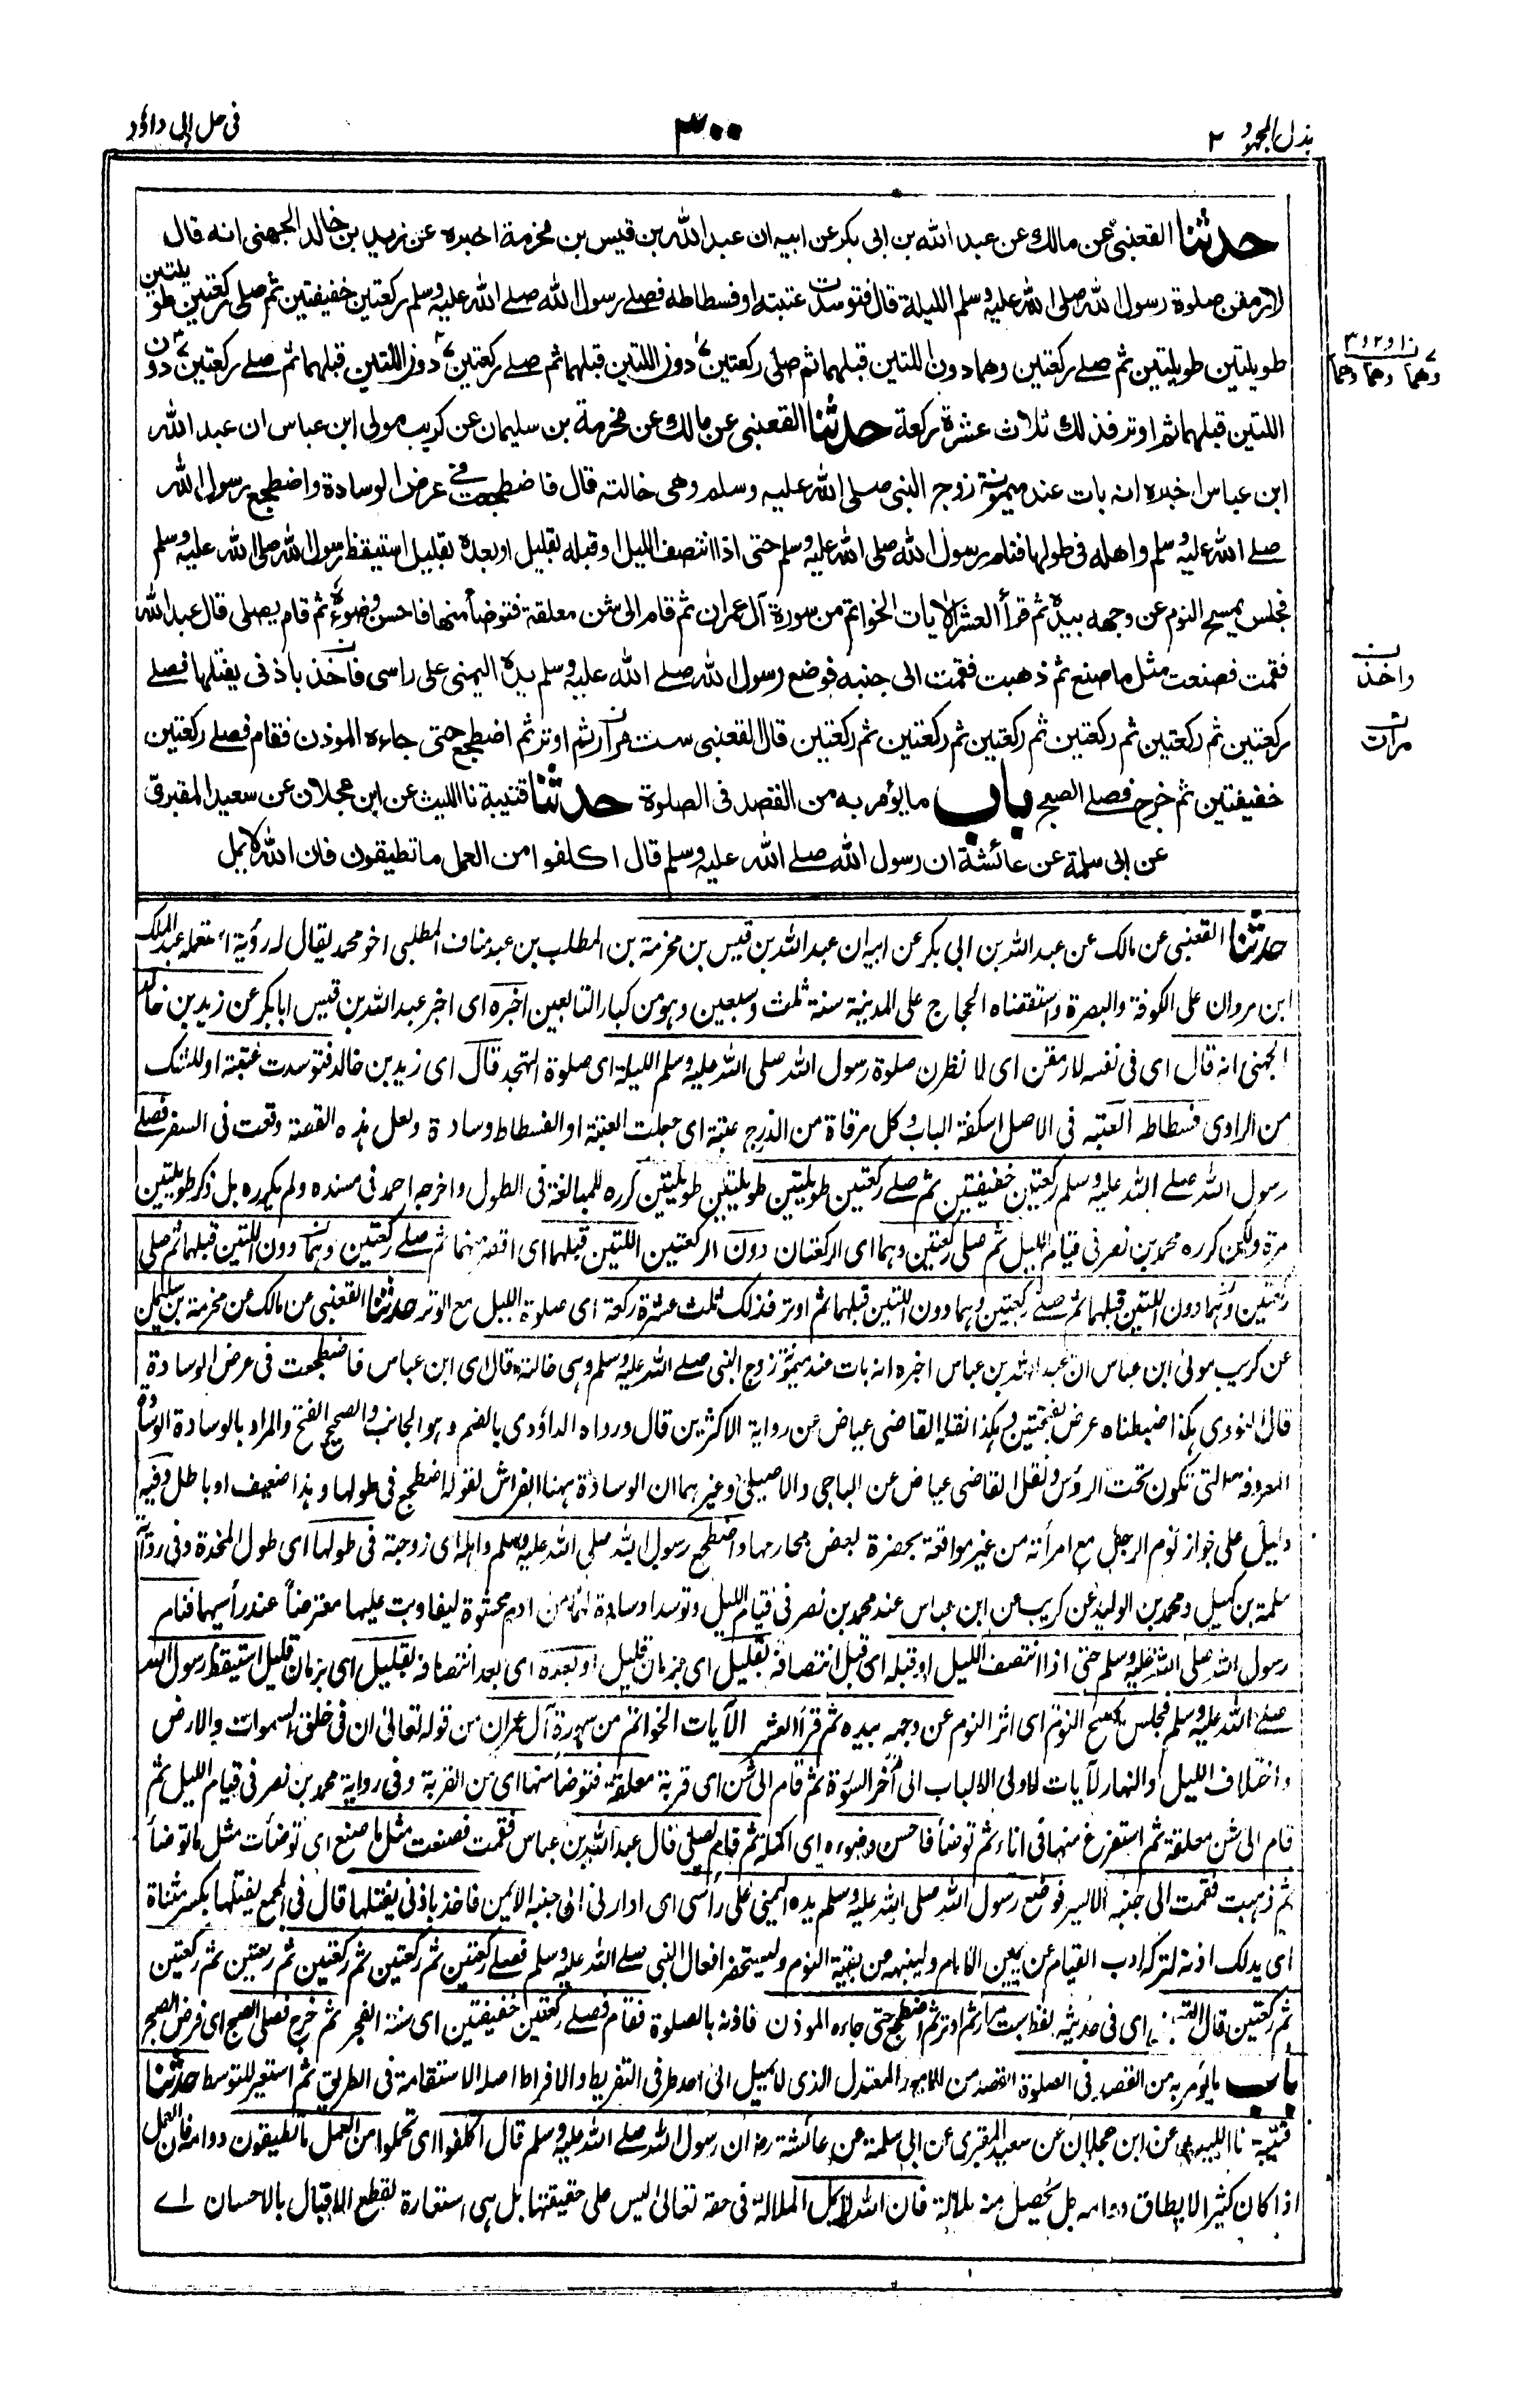 بذل المجهود ٢
٣٠٠
فى حل ابى داؤد
حدثنا القعنبى عن مالك عن عبد الله بن ابى بكر عن ابيه ان عبد الله بن قيس بن مخرمة اخبره عن زيد بن خالد الجهنى انه قال
لارمقن صلوة رسول الله صلى الله عليه وسلم الليلة قال فتوسدت عتبته او فسطاطه فصلے رسول الله صلے الله عليه وسلم ركعتين خفيفتين ثم صلى ركعتين طويلتين
طويلتين طويلتين ثم صلے ركعتين وهما دون اللتين قبلهما ثم صلى ركعتين دون اللتين قبلهما ثم صلے ركعتين دون اللتين قبلهما ثم صلے ركعتين دون
اللتين قبلهما ثم اوتر فذلك ثلاث عشرة ركعة حدثنا القعنبى عن مالك عن مخرمة بن سليمان عن كريب مولى ابن عباس ان عبد الله
ابن عباس اخبره انه بات عند ميمونة زوج النبى صلى الله عليه وسلم وهى خالته قال فاضطجعت فى عرض الوسادة واضطجع رسول الله
صلے الله عليه وسلم واهله فى طولها فنام رسول الله صلى الله عليه وسلم حتى اذا انتصف الليل او قبله بقليل او بعده بقليل استيقظ رسول الله صلى الله عليه وسلم
فجلس يمسح النوم عن وجهه بيده ثم قرأ العشر الايات الخواتم من سورة آل عمران ثم قام الى شن معلقة فتوضأ منها فاحسن وضوءه ثم قام يصلى قال عبد الله
فقمت فصنعت مثل ما صنع ثم ذهبت فقمت الى جنبه فوضع رسول الله صلے الله عليه وسلم يده اليمنى على راسى فاخذ باذنى يفتلها فصلے
ركعتين ثم ركعتين ثم ركعتين ثم ركعتين ثم ركعتين ثم ركعتين قال القعنبى ست مرار ثم اوتر ثم اضطجع حتى جاءه الموذن فقام فصلے ركعتين
خفيفتين ثم خرج فصلے الصبح باب ما يؤمر به من القصد فى الصلوة حدثنا قتيبة نا الليث عن ابن عجلان عن سعيد المقبرى
عن ابى سلمة عن عائشة ان رسول الله صلے الله عليه وسلم قال اكلفوا من العمل ما تطيقون فان الله لا يمل
ن ١ و ٢ و ٣
وهما وهما وهما
ن
واخذ
ن
مرات
حدثنا القعنبى عن مالك عن عبد الله بن ابى بكر عن ابيه ان عبد الله بن قيس بن مخرمة بن المطلب بن عبد مناف المطلبى اخو محمد يقال له رؤية استعمله عبد الملك
ابن مروان على الكوفة والبصرة واستقضاه الحجاج على المدينة سنة ثلث وسبعين وهو من كبار التابعين اخبره اى اخبر عبد الله بن قيس ابا بكر عن زيد بن خالد
الجهنى انه قال اى فى نفسه لارمقن اى لانظرن صلوة رسول الله صلى الله عليه وسلم الليلة اى صلوة التهجد قال اى زيد بن خالد فتوسدت عتبته او للشك
من الراوى فسطاطه العتبه فى الاصل اسكفة الباب وكل مرقاة من الدرج عتبة اى جعلت العتبة او الفسطاط وسادة ولعل هذه القصة وقعت فى السفر فصلے
رسول الله صلے الله عليه وسلم ركعتين خفيفتين ثم صلے ركعتين طويلتين طويلتين طويلتين كرره للمبالغة فى الطول واخرجه احمد فى مسنده ولم يكرره بل ذكر طويلتين
مرة ولكن كرره محمد بن نصر فى قيام الليل ثم صلى ركعتين وهما اى الركعتان دون الركعتين اللتين قبلهما اى اقصر منهما ثم صلے ركعتين وهما دون اللتين قبلهما ثم صلى
ركعتين وهما دون اللتين قبلهما ثم صلے ركعتين وهما دون اللتين قبلهما ثم اوتر فذلك ثلث عشرة ركعة اى صلوة الليل مع الوتر حدثنا القعنبى عن مالك عن مخرمة بن سليمن
عن كريب مولى ابن عباس ان عبد الله بن عباس اخبره انه بات عند ميمونة زوج النبى صلے الله عليه وسلم وهى خالته قال اى ابن عباس فاضطجعت فى عرض الوسادة
قال النووى هكذا ضبطناه عرض بفتحتين وهكذا نقله القاضى عياض عن رواية الاكثرين قال ورواه الداؤدى بالضم وهو الجانب والصحيح الفتح والمراد بالوسادة الوسادة
المعروفة التى تكون تحت الرؤس ونقل القاضى عياض عن الباجى والاصيلى وغيرهما ان الوسادة ههنا الفراش لقوله اضطجع فى طولها وهذا ضعيف او باطل وفيه
دليل على جواز نوم الرجل مع امرأته من غير مواقعة بحضرة بعض محارمها واضطجع رسول الله صلى الله عليه وسلم واهله اى زوجته فى طولها اى طول المخدة وفى رواية
سلمة بن كهيل ومحمد بن الوليد عن كريب عن ابن عباس عند محمد بن نصر فى قيام الليل وتوسدا وسادة لهما من ادم محشوة ليفا وبت عليها معترضاً عند رأسيهما فنام
رسول الله صلى الله عليه وسلم حتى اذا انتصف الليل او قبله اى قبل انتصافه بقليل اى بزمان قليل او بعده اى بعد انتصافه بقليل اى بزمان قليل استيقظ رسول الله
صلے الله عليه وسلم فجلس يمسح النوم اى اثر النوم عن وجهه بيده ثم قرأ العشر الآيات الخواتم من سورة آل عمران من قوله تعالى ان فى خلق السموات والارض
واختلاف الليل والنهار لآيات لاولى الالباب الى آخر السورة ثم قام الى شن اى قربة معلقة فتوضأ منها اى من القربة وفى رواية محمد بن نصر فى قيام الليل ثم
قام الى شن معلقة ثم استفرغ منها فى اناء ثم توضأ فاحسن وضوءه اى اكمله ثم قام يصلى قال عبد الله بن عباس فقمت فصنعت مثل ما صنع اى توضأت مثل ما توضأ
ثم ذهبت فقمت الى جنبه الايسر فوضع رسول الله صلى الله عليه وسلم يده اليمنى على رأسى اى ادارنى الى جنبه الايمن فاخذ باذنى يفتلها قال فى المجمع يفتلها بكسر مثناة
اى يدلك اذنه لتركه ادب القيام عن يمين الامام ولينبهه من بقية النوم وليستحضر افعال النبى صلے الله عليه وسلم فصلے ركعتين ثم ركعتين ثم ركعتين ثم ركعتين ثم ركعتين
ثم ركعتين قال اى فى حديثه بلفظ ست مرار ثم اوتر ثم اضطجع حتى جاءه الموذن فاذنه بالصلوة فقام فصلے ركعتين خفيفتين اى سنة الفجر ثم خرج فصلى الصبح اى فرض الصبح
باب ما يؤمر به من القصد فى الصلوة القصد من الامور المعتدل الذى لا يميل الى احد طرفى التفريط والافراط اصله الاستقامة فى الطريق ثم استعير للتوسط حدثنا
قتيبة نا الليث عن ابن عجلان عن سعيد المقبرى عن ابى سلمة عن عائشة رض ان رسول الله صلے الله عليه وسلم قال اكلفوا اى تحملوا من العمل ما تطيقون دوامه فان العمل
اذا كان كثيرا لا يطاق دوامه بل يحصل منه ملالة فان الله لا يمل الملالة فى حقه تعالى ليس على حقيقتها بل هى استعارة لقطع الاقبال بالاحسان اے